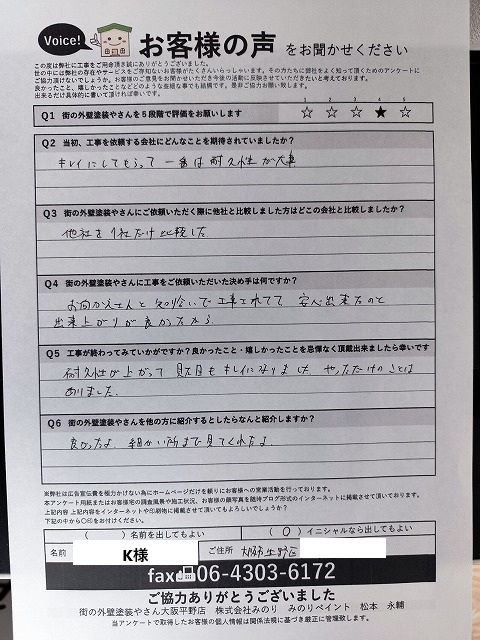 Voice!
お客様の声 をお聞かせください
この度は弊社に工事をご用命頂き誠にありがとうございました。
世の中には弊社の存在やサービスをご存知ないお客様がたくさんいらっしゃいます。その方たちに弊社をよく知って頂くためのアンケートに
ご協力頂けないでしょうか。お客様のご意見をお聞かせいただき今後の活動に反映させていただきたいと考えております。
良かったこと、嬉しかったことなどどのような些細な事でも結構です。是非ご協力お願い致します。
出来るだけ具体的に書いて頂ければ幸いです。
Q1 街の外壁塗装やさんを5段階で評価をお願いします
1 2 3 4 5
☆ ☆ ☆ ★ ☆
Q2 当初、工事を依頼する会社にどんなことを期待されていましたか?
キレイにしてもらって 一番は耐久性が大事
Q3 街の外壁塗装やさんにご依頼いただく際に他社と比較しました方はどこの会社と比較しましたか?
他社を1社だけ比較した
Q4 街の外壁塗装やさんに工事をご依頼いただいた決め手は何ですか?
お向かえさんと知り合いで工事されてて 安心出来るのと
出来上がりが良かったから
Q5 工事が終わってみていかがですか?良かったこと・嬉しかったことを忌憚なく頂戴出来ましたら幸いです
耐久性が上がって見た目もキレイになりました やっただけのことは
ありました.
Q6 街の外壁塗装やさんを他の方に紹介するとしたらなんと紹介しますか?
良かったよ 細かい所まで見てくれたよ
※弊社は広告宣伝費を極力かけない為にホームページだけを頼りにお客様への営業活動を行っております。
本アンケート用紙またはお客様宅の調査風景や施工状況、お客様の顔写真を随時ブログ形式のインターネットに掲載させて頂いております。
上記内容 上記内容をインターネットや印刷物に掲載させて頂いてもよろしいでしょうか?
下記の中から○印をお付けください。
( )名前を出してもよい (○)イニシャルなら出してもよい
名前 K様 ご住所 大阪市生野区
fax 06-4303-6172
ご協力ありがとうございました
街の外壁塗装やさん大阪平野店 株式会社みのり みのりペイント 松本 永輔
当アンケートで取得したお客様の個人情報は関係法規に基づき厳正に管理致します。